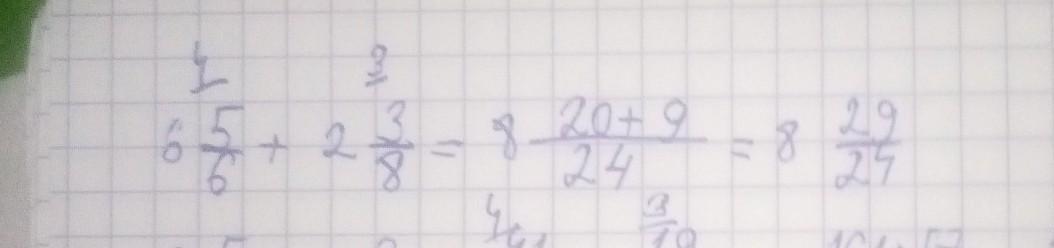 4 3
6 5/6 + 2 3/8 = 8 20+9/24 = 8 29/24